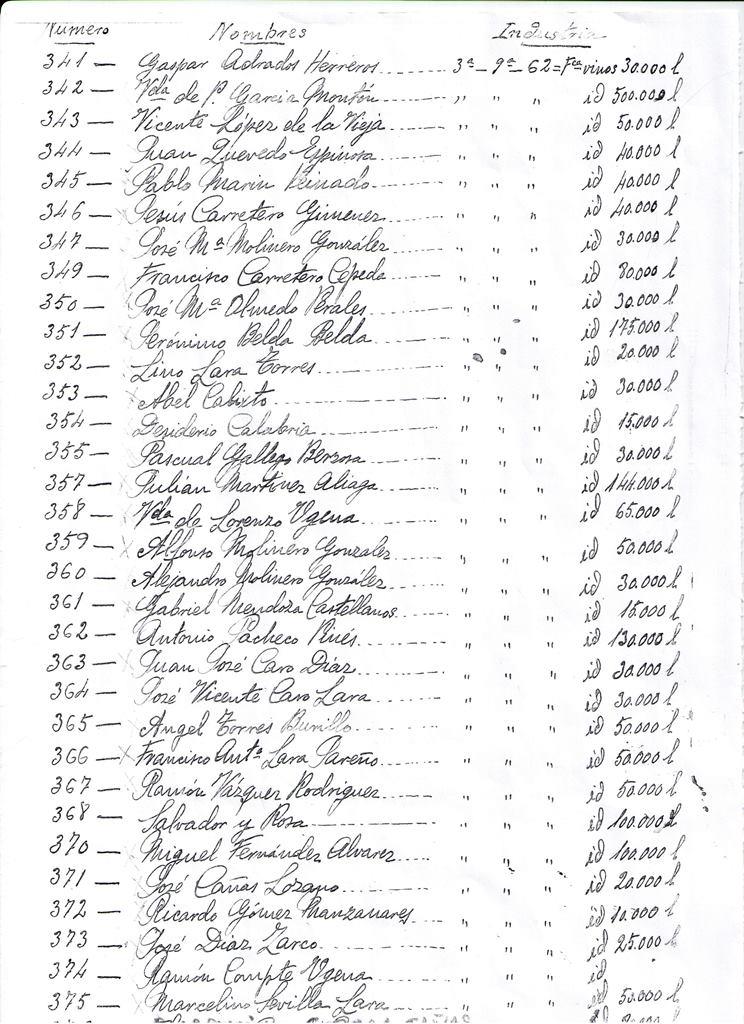 Número Nombres Industria
341 — Gaspar Adrados Herreros 3ª — 9ª — 62 = Fca vinos 30.000 l
342 — Vda de P. Garcia Montón " " " id 500.000 l
343 — Vicente López de la Vieja " " " id 50.000 l
344 — Juan Quevedo Espinosa " " " id 40.000 l
345 — Pablo Marin Peinado " " " id 40.000 l
346 — Jesús Carretero Gimenez " " " id 40.000 l
347 — José Mª Molinero González " " " id 30.000 l
349 — Francisco Carretero Cepeda " " " id 80.000 l
350 — José Mª Olmedo Perales " " " id 30.000 l
351 — Jerónimo Belda Belda " " " id 175.000 l
352 — Lino Lara Torres " " " id 20.000 l
353 — Abel Calixto " " " id 30.000 l
354 — Desiderio Calabria " " " id 15.000 l
355 — Pascual Gallego Berzosa " " " id 30.000 l
357 — Julián Martínez Aliaga " " " id 144.000 l
358 — Vda de Lorenzo Ugena " " " id 65.000 l
359 — Alfonso Molinero Gonzalez " " " id 50.000 l
360 — Alejandro Molinero González " " " id 30.000 l
361 — Gabriel Mendoza Castellanos " " " id 15.000 l
362 — Antonio Pacheco Pinés " " " id 130.000 l
363 — Juan José Caro Diaz " " " id 30.000 l
364 — José Vicente Caro Lara " " " id 30.000 l
365 — Angel Torres Burillo " " " id 50.000 l
366 — Francisco Antº Lara Pareño " " " id 50.000 l
367 — Ramón Vázquez Rodriguez " " " id 50.000 l
368 — Salvador y Rosa " " " id 100.000 l
370 — Miguel Fernández Alvarez " " " id 100.000 l
371 — José Cañas Lozano " " " id 20.000 l
372 — Ricardo Gómez Manzanares " " " id 10.000 l
373 — José Diaz Zarco " " " id 25.000 l
374 — Ramón Compte Ugena " " " id
375 — Marcelino Sevilla Lara " " " id 50.000 l